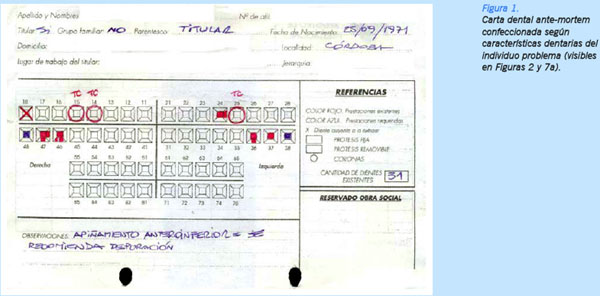 Apellido y Nombres Nº de afil.
Titular SI Grupo familiar NO Parentesco TITULAR Fecha de Nacimiento 25/09/1971
Domicilio: Localidad CÓRDOBA
lugar de trabajo del titular: Jerarquía
TC TC TC
18 17 16 15 14 13 12 11 21 22 23 24 25 26 27 28
48 47 46 45 44 43 42 41 31 32 33 34 35 36 37 38
55 54 53 52 51 61 62 63 64 65
Derecha Izquierda
85 84 83 82 81 71 72 73 74 75
REFERENCIAS
COLOR ROJO: Prestaciones existentes
COLOR AZUL: Prestaciones requeridas
X Diente ausente o a extraer
PROTESIS FIJA
PROTESIS REMOVIBLE
CORONAS
CANTIDAD DE DIENTES EXISTENTES 31
RESERVADO OBRA SOCIAL
OBSERVACIONES: APIÑAMIENTO ANTEROINFERIOR = SE
RECOMIENDA DEPURACIÓN
Figura 1.
Carta dental ante-mortem
confeccionada según
características dentarias del
individuo problema (visibles
en Figuras 2 y 7a).